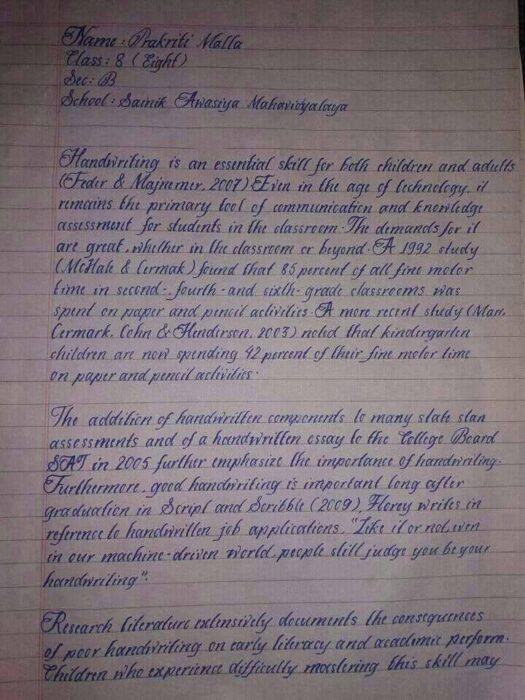 Name : Prakriti Malla
Class : 8 (Eight)
Sec : B
School : Sainik Awasiya Mahavidyalaya
Handwriting is an essential skill for both children and adults
(Feder & Majnemer, 2007) Even in the age of technology, it
remains the primary tool of communication and knowledge
assessment for students in the classroom. The demands for it
are great, whether in the classroom or beyond. A 1992 study
(McHale & Cermak) found that 85 percent of all fine motor
time in second- fourth- and sixth- grade classrooms was
spent on paper and pencil activities. A more recent study (Marr,
Cermark, Cohn & Henderson, 2003) noted that kindergarten
children are now spending 42 percent of their fine motor time
on paper and pencil activities.
The addition of handwritten components to many state stan
assessments and of a handwritten essay to the College Board
SAT in 2005 further emphasize the importance of handwriting.
Furthermore, good handwriting is important long after
graduation in Script and Scribble (2009), Florey writes in
reference to handwritten job applications, "Like it or not, even
in our machine-driven world, people still judge you be your
handwriting".
Research literature extensively documents the consequences
of poor handwriting on early literacy and academic perform.
Children who experience difficulty mastering this skill may